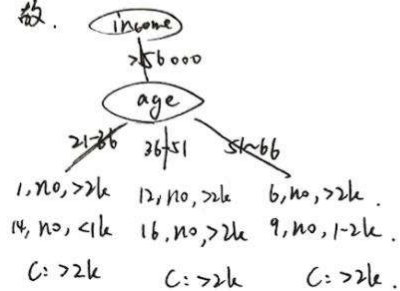 故.
income
>56000
age
21-36 36-51 51~66
1, no, >2k 12, no, >2k 6, no, >2k.
14, no, <1k 16, no, >2k 9, no, 1-2k.
C: >2k C: >2k C: >2k.